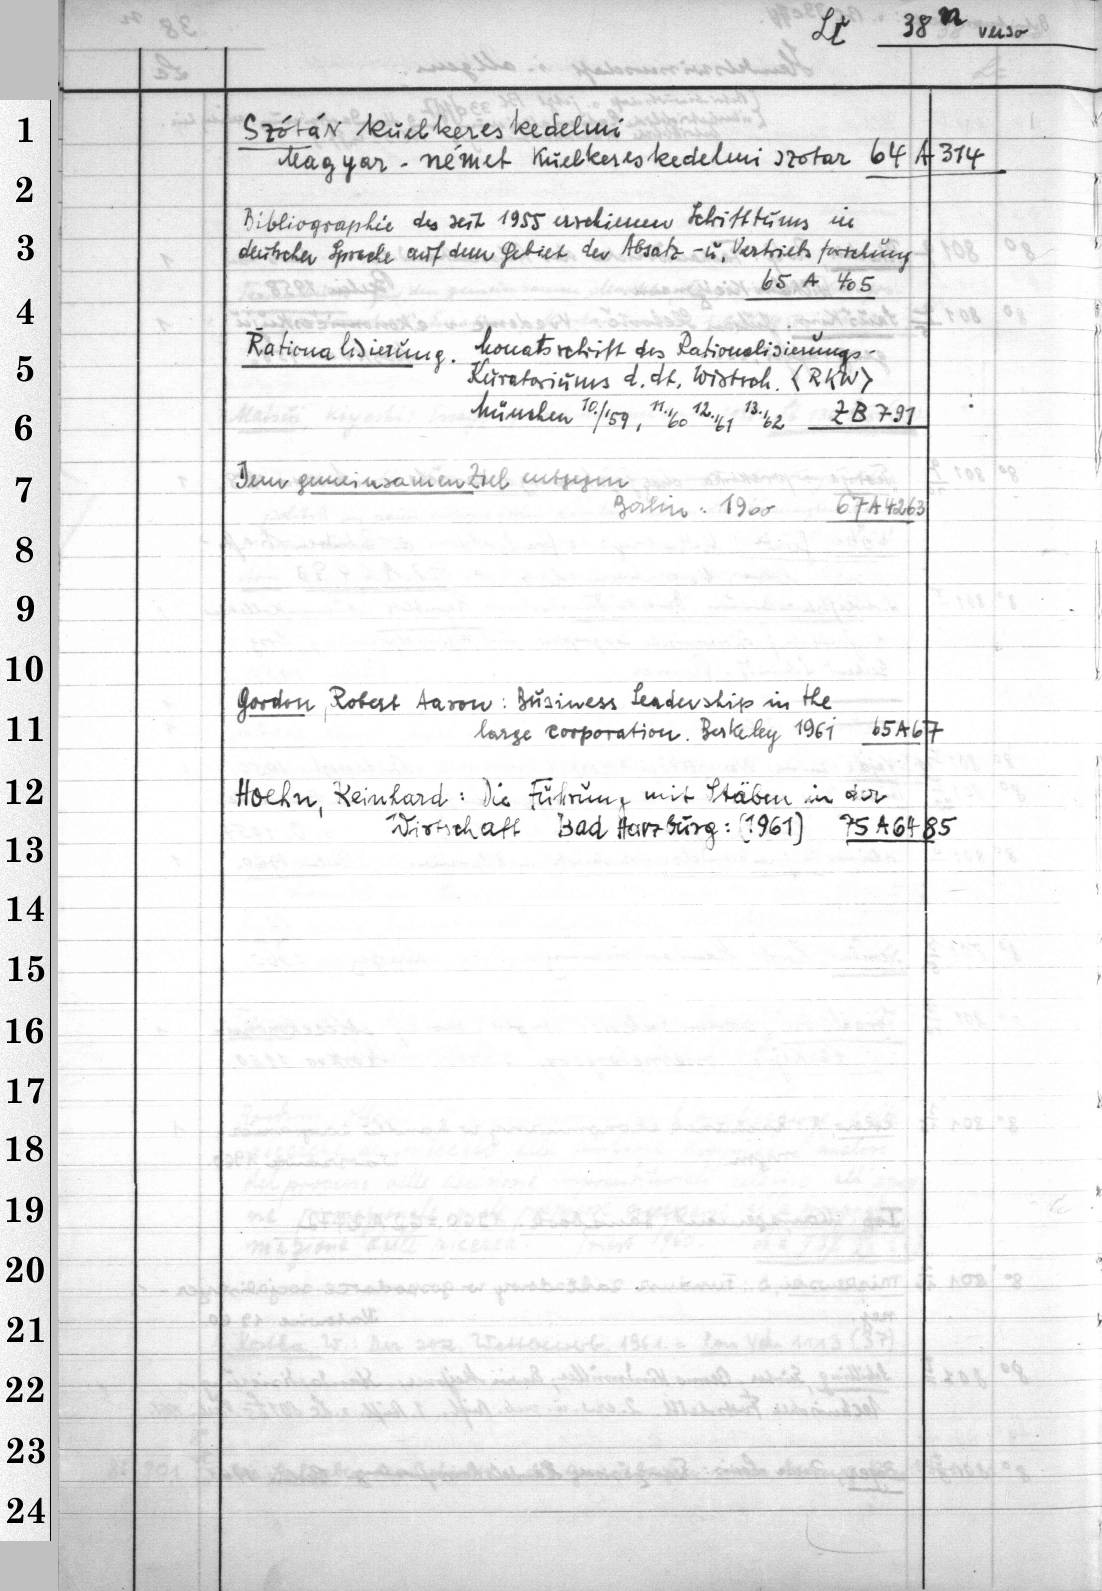 Lt 38 n verso
1
Szótár Kuelkereskedelmi
Magyar - német Kuelkereskedelmi szotar 64 A 314
2
Bibliographie des seit 1955 erschienenen Schrifttums in
3
deutscher Sprache auf dem Gebiet der Absatz- u. Vertriebsforschung
65 A 405
4
Rationalisierung. Monatsschrift des Rationalisierungs-
5
Kuratoriums d. dt. Wirtsch. <RKW>
München 10./'59, 11./60 12./61 13./62 ZB 791
6
Dem gemeinsamen Ziel entgegen
7
Berlin: 1960 67 A 4263
8
9
10
Gordon, Robert Aaron: Business Leadership in the
11
large corporation. Berkeley 1961 65 A 67
12
Hoehn, Reinhard: Die Führung mit Stäben in der
Wirtschaft Bad Harzburg: (1961) 75 A 6485
13
14
15
16
17
18
19
20
21
22
23
24